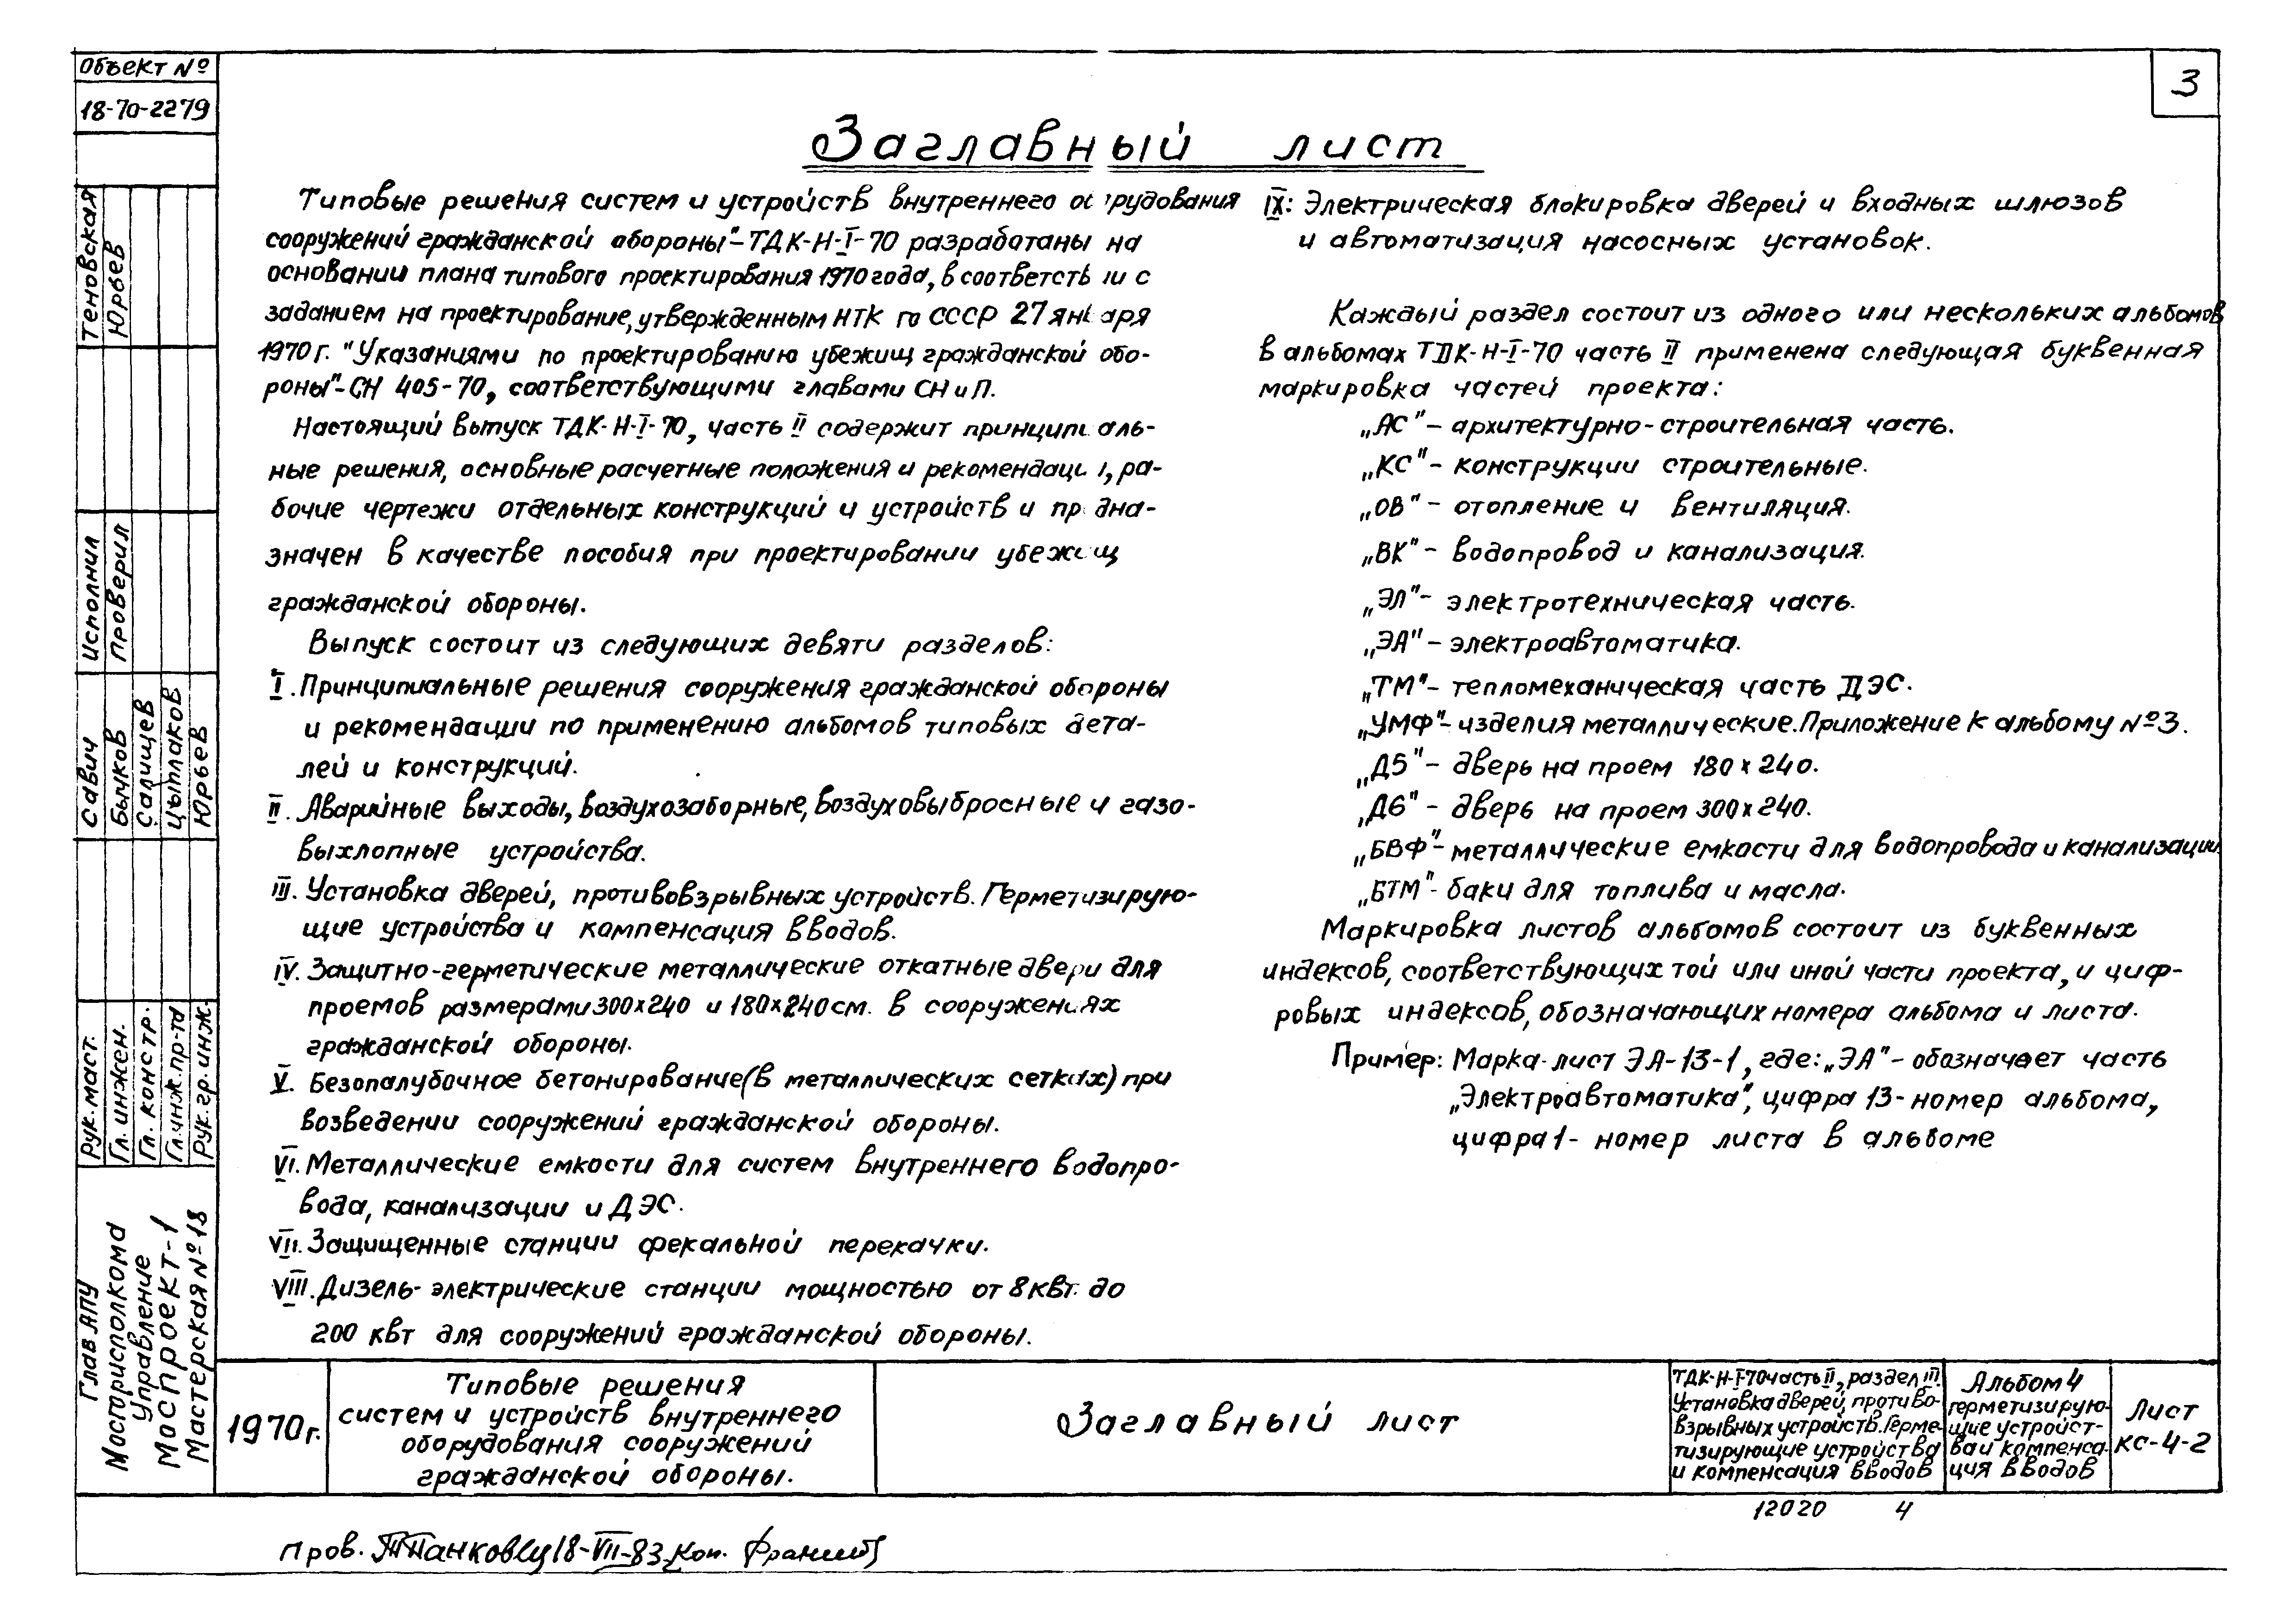 Объект №
18-70-2279
3
Заглавный лист
Типовые решения систем и устройств внутреннего об рудования
сооружений гражданской обороны"-ТДК-Н-I-70 разработаны на
основании плана типового проектирования 1970 года, в соответств ии с
заданием на проектирование, утвержденным НТК го СССР 27 янв аря
1970 г. "Указаниями по проектированию убежищ гражданской обо-
роны"-СН 405-70, соответствующими главами СН и П.
Настоящий выпуск ТДК-Н-I-70, часть II содержит принципи аль-
ные решения, основные расчетные положения и рекомендаци , ра-
бочие чертежи отдельных конструкций и устройств и пр дна-
значен в качестве пособия при проектировании убежищ
гражданской обороны.
Выпуск состоит из следующих девяти разделов:
I. Принципиальные решения сооружения гражданской обороны
и рекомендации по применению альбомов типовых дета-
лей и конструкций.
II. Аварийные выходы, воздухозаборные, воздуховыбросные и газо-
выхлопные устройства.
III. Установка дверей, противовзрывных устройств. Герметизирую-
щие устройства и компенсация вводов.
IV. Защитно-герметические металлические откатные двери для
проемов размерами 300х240 и 180х240 см. в сооружениях
гражданской обороны.
V. Безопалубочное бетонирование (в металлических сетках) при
возведении сооружений гражданской обороны.
VI. Металлические емкости для систем внутреннего водопро-
вода, канализации и ДЭС.
VII. Защищенные станции фекальной перекачки.
VIII. Дизель-электрические станции мощностью от 8 квт. до
200 квт для сооружений гражданской обороны.
IX: Электрическая блокировка дверей и входных шлюзов
и автоматизация насосных установок.
Каждый раздел состоит из одного или нескольких альбомов
в альбомах ТДК-Н-I-70 часть II применена следующая буквенная
маркировка частей проекта:
„АС" – архитектурно-строительная часть.
„КС" – конструкции строительные.
„ОВ" – отопление и вентиляция.
„ВК" – водопровод и канализация.
„ЭЛ" – электротехническая часть.
„ЭА" – электроавтоматика.
„ТМ" – тепломеханическая часть ДЭС.
„УМФ" – изделия металлические. Приложение к альбому №3.
„Д5" – дверь на проем 180х240.
„Д6" – дверь на проем 300х240.
„БВФ" – металлические емкости для водопровода и канализации.
„БТМ" – баки для топлива и масла.
Маркировка листов альбомов состоит из буквенных
индексов, соответствующих той или иной части проекта, и циф-
ровых индексов, обозначающих номера альбома и листа.
Пример: Марка-лист ЭА-13-1, где: „ЭА" – обозначает часть
„Электроавтоматика", цифра 13 - номер альбома,
цифра 1 - номер листа в альбоме
Теновская
Юрьев
Исполнил
Проверил
Савич
Бычков
Салищев
Цыплаков
Юрьев
Рук. маст.
Гл. инжен.
Гл. констр.
Гл. инж. пр-та
Рук. гр. инж.
Глав АПУ
Мосгорисполкома
Управление
Моспроект-1
Мастерская №18
1970 г.
Типовые решения
систем и устройств внутреннего
оборудования сооружений
гражданской обороны.
Заглавный лист
ТДК-Н-I-70 часть II, раздел III.
Установка дверей, противо-
взрывных устройств. Герме-
тизирующие устройства
и компенсация вводов
Альбом 4
герметизирую-
щие устройст-
ва и компенса-
ция вводов
Лист
КС-4-2
12020 4
Пров. 18-VII-83 Коп.